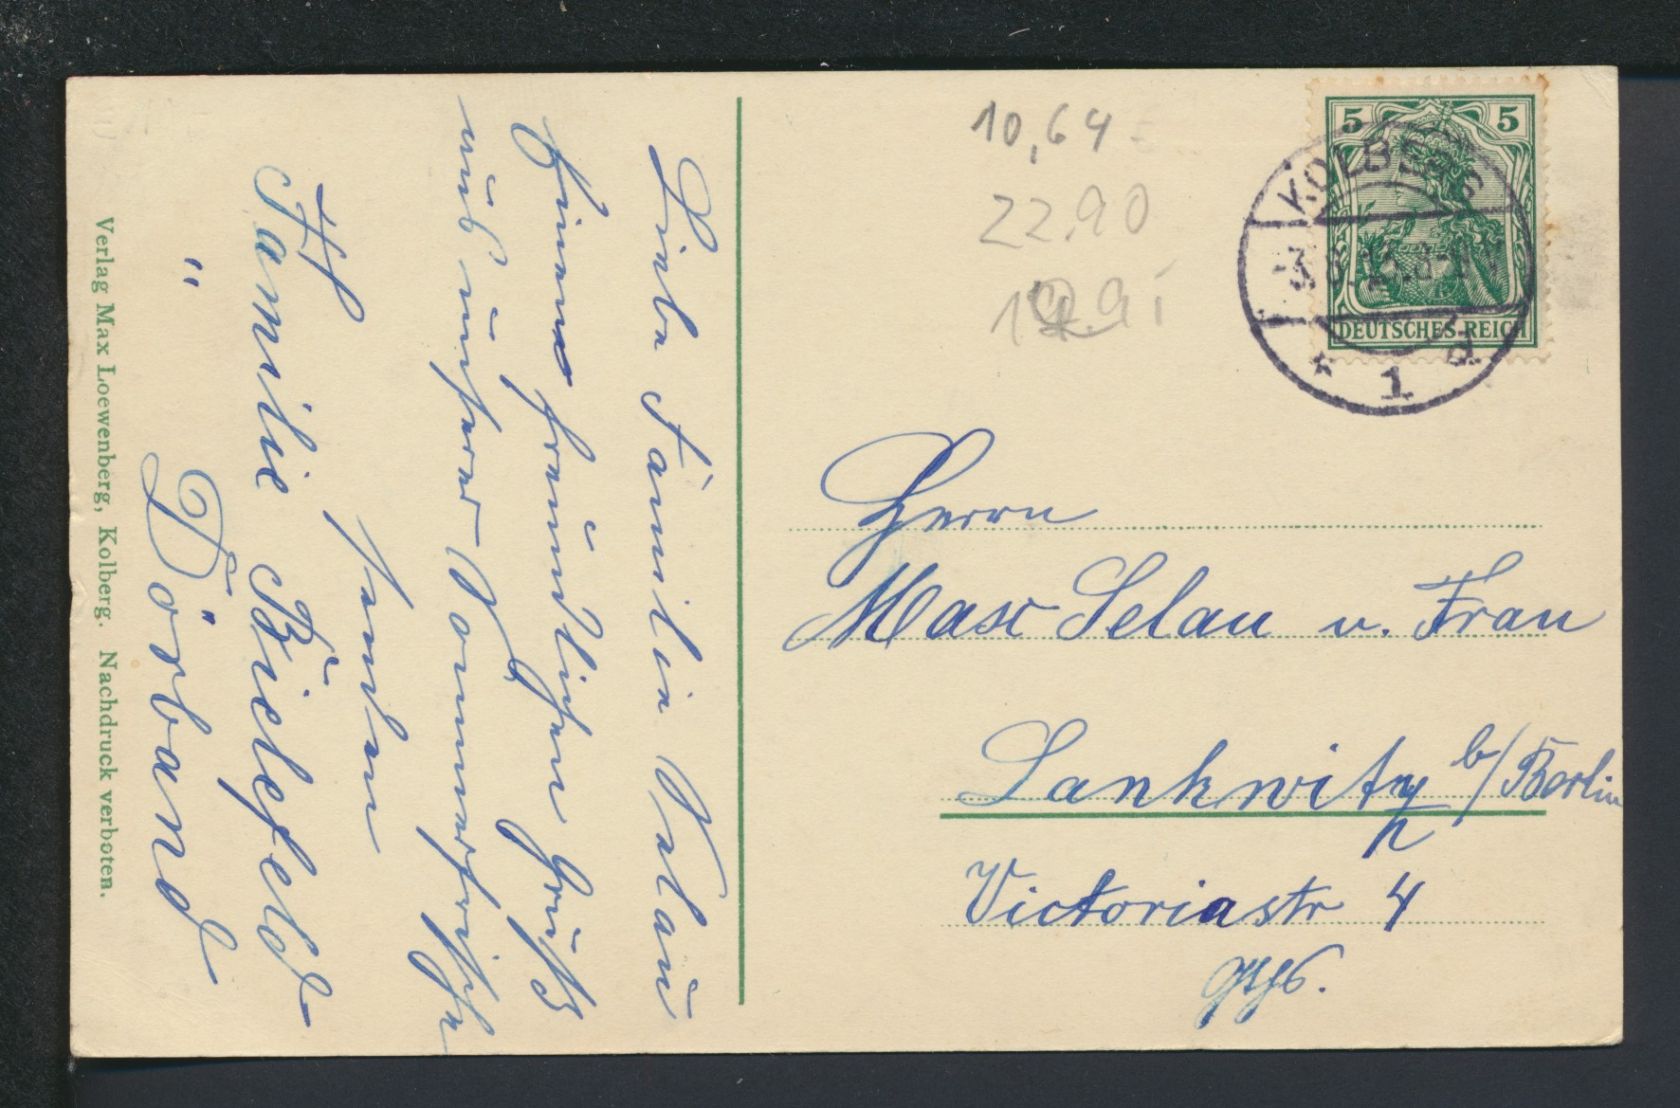 Liebe Familie Selau
Einen freundlichen Gruß
aus unserer Sommerfrische
senden
Familie Bielefeld
" Dörband
Verlag Max Loewenberg, Kolberg. Nachdruck verboten.
10,64
22.90
5 5
DEUTSCHES REICH
KOLBERG
* 1 d
Herrn
Max Selau u. Frau
Lankwitz b/Berlin
Victoriastr 4